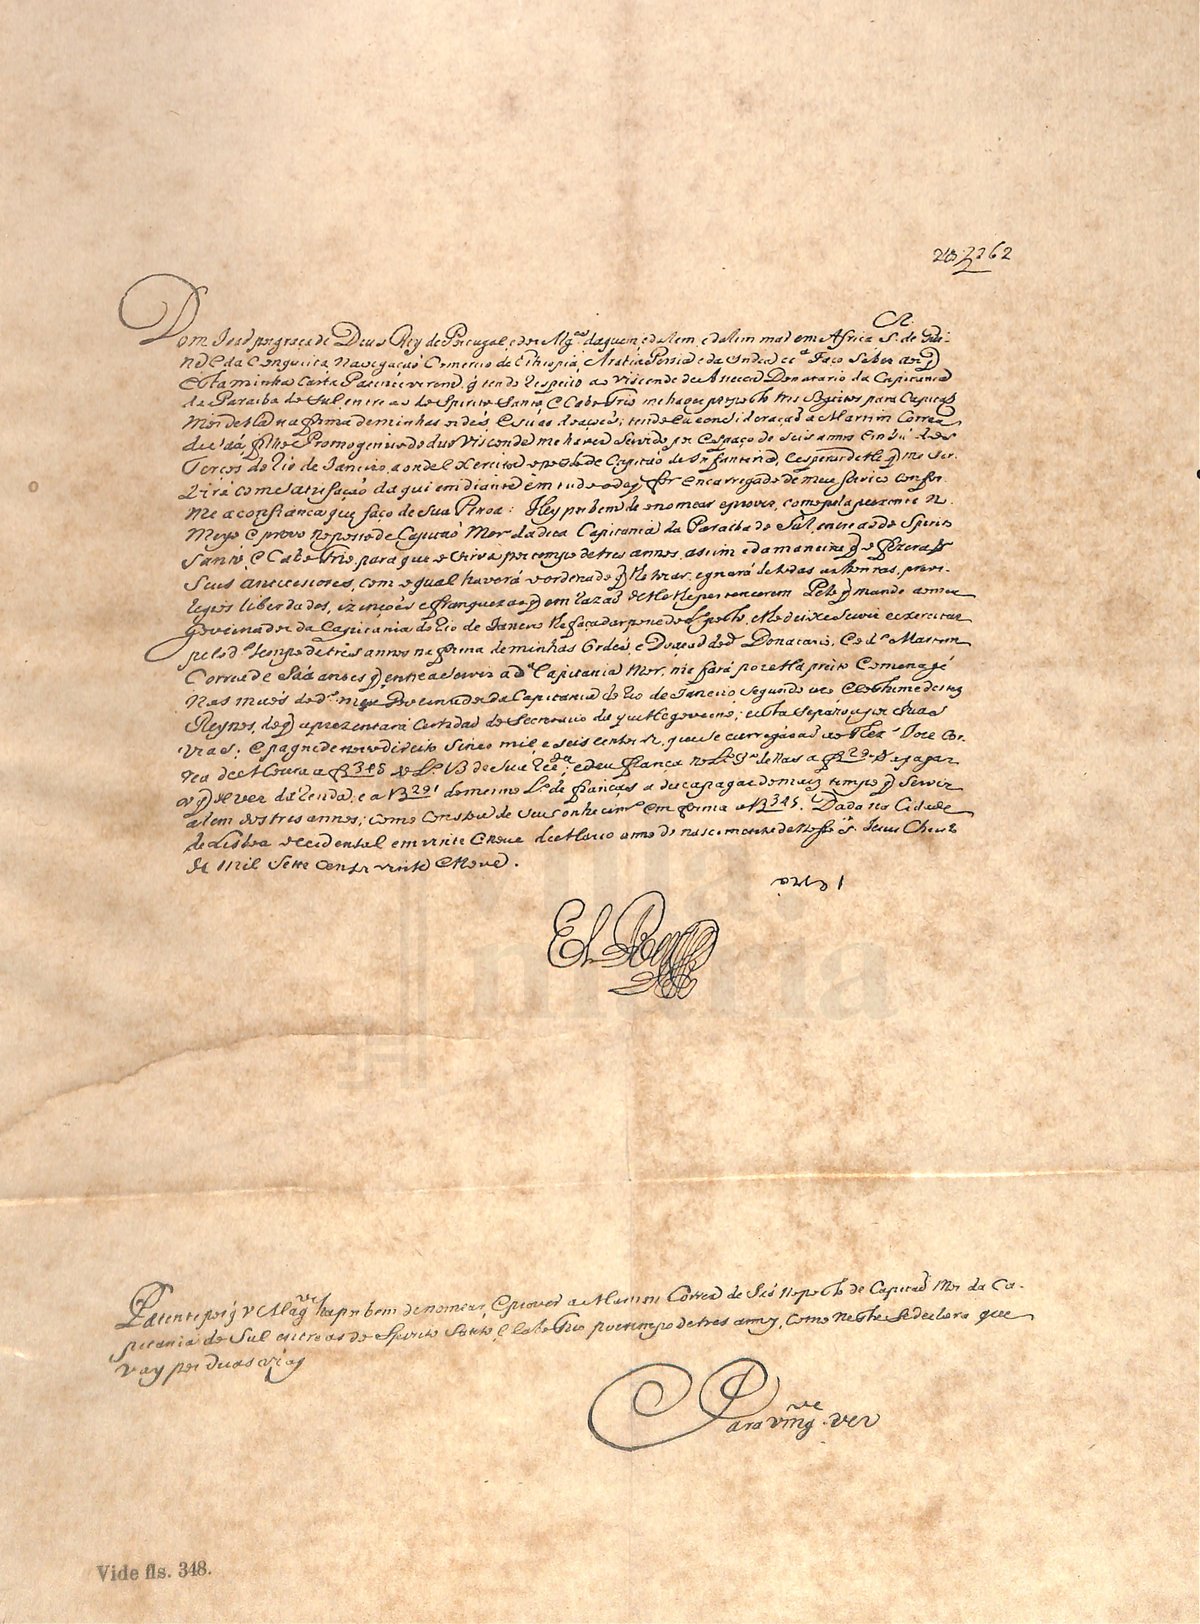 Dom João por graça de Deos Rey de Portugal e dos Alg.es daquem, e dalem mar em Africa S.r de Gui-
né e da Conquista, navegação Comercio de Ethiopia, Arabia Persia e da India ec.a Faço saber aos q
esta minha carta Patente virem q tendo respeito ao Visconde de Asseca Donatario da Capitania
da Paraiba do Sul, entre as do Spirito Santo, e Cabo Frio me haver proposto tres sogeitos para Capitão
Mor della na forma de minhas ordeñs, e suas doaçoes; tendo eu consideração a Martim Correa
de Sá, filho Promogenito do dito Visconde me haver servido por espaço de seis annos em hũ dos
Terços do Rio de Janeiro, aonde exercitou o posto de Capitão de Infantaria, e esperar delle q me ser-
virá com satisfação daqui em diante em tudo o de q for encarregado de meu servico confor-
me a confiança que faço de sua Pesoa: Hey por bem de o nomear e prover, como pela presente no-
meyo e provo no posto de Capitão Mor da dita Capitania da Paraiba do Sul, entre as do Spirito
Santo, e Cabo Frio, para que o sirva por tempo de tres annos, asim e da maneira q o fizerão
seus antecesores, com o qual haverá o ordenado q lhe tocar, e gozará de todas as honras, previ-
legios liberdades, izençoẽs e franquezas q em razaõ delle lhe pertencerem Pelo q mando ao meu
governador da Capitania do Rio de Janeiro lhe faça dar posse do d.o posto, e lho deixe servir e exercitar
pelo d.o tempo de tres annos na forma de minhas Ordeñs, e Doação do d.o Donatario, e o d.o Martim
Correa de Sáá antes q entre a servir a d.a Capitania Mor, me fará por ella preito e omenagẽ
nas maõs do d.o meu Governador da Capitania do Rio de Janeiro segundo uso, e costume destes
Reynos, de q aprezentará Certidaõ do Secretario do governo;
vias. E pagou de novo direito sinco mil e seis centos rs. que se carregaraõ ao Thez.o Joze Cor-
rea de Moura a f 345 do L.o 13 de sua rec.ta, e deu fiança no L.o 3.o dellas a f 29 a pagar
o q dever da tenda, e a f 291 do mesmo L.o de fianças a de pagar do mais tempo q servir
alem dos tres annos; como constou de seu conhecim.to em forma a f 345. Dada na Cidade
de Lisboa occidental em vinte e nove de Março anno do nascimento de Nosso S.r Jesus Christo
de mil sette centos vinte e nove.
El Rey
Patente por q V Mag.de ha por bem de nomear, e prover a Martim Correa de Sáá no posto de Capitaõ Mor da Ca-
pitania do Sul entre as do Spirito Santo, e Cabo Frio por tempo de tres annos, como nesta se declara que
vay por duas vias
Para V Mag.de ver
Vide fls. 348.
villa
maria